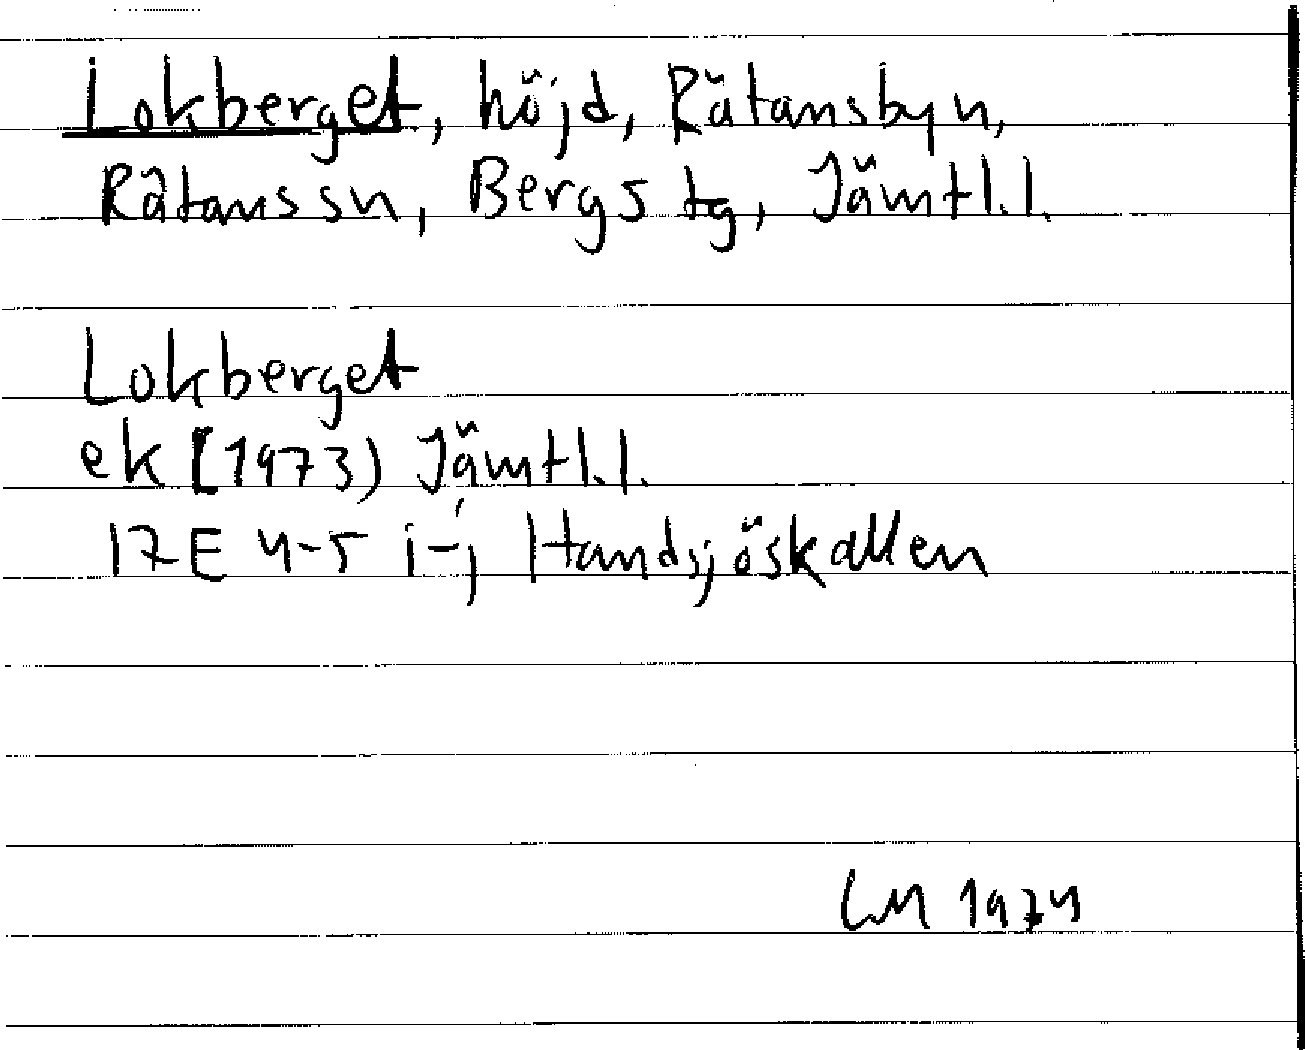 Lokberget, höjd, Rätansbyn,
Rätans sn, Bergs tg, Jämtl.l.
Lokberget
ek (1973) Jämtl.l.
17E 4-5 i-j Handsjöskallen
LM 1974